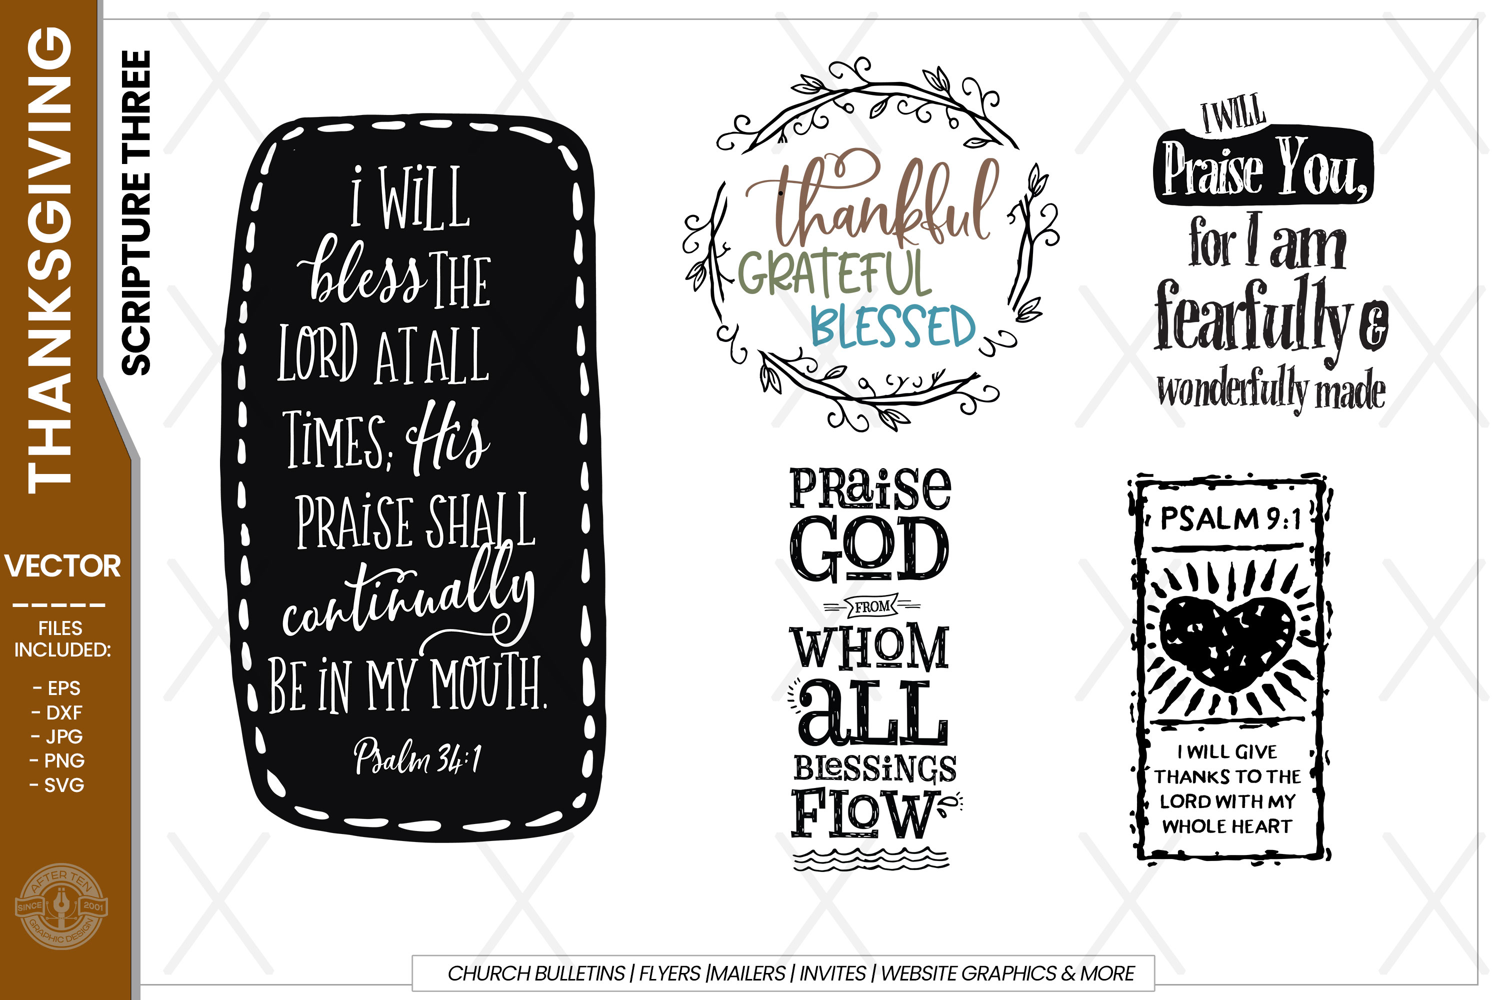 THANKSGIVING
SCRIPTURE THREE
VECTOR
FILES
INCLUDED:
- EPS
- DXF
- JPG
- PNG
- SVG
AFTER TEN
SINCE 2001
GRAPHIC DESIGN
i WiLL
bless THE
LORD AT ALL
TiMES; His
PRAiSE SHALL
continually
BE iN MY MOUTH.
Psalm 34:1
thankful
GRATEFUL
BLESSED
I WILL
Praise You,
for I am
fearfully &
wonderfully made
PRaiSe
GOD
FROM
WHOM
aLL
BLeSSiNGS
FLOW
PSALM 9:1
I WILL GIVE
THANKS TO THE
LORD WITH MY
WHOLE HEART
CHURCH BULLETINS | FLYERS |MAILERS | INVITES | WEBSITE GRAPHICS & MORE